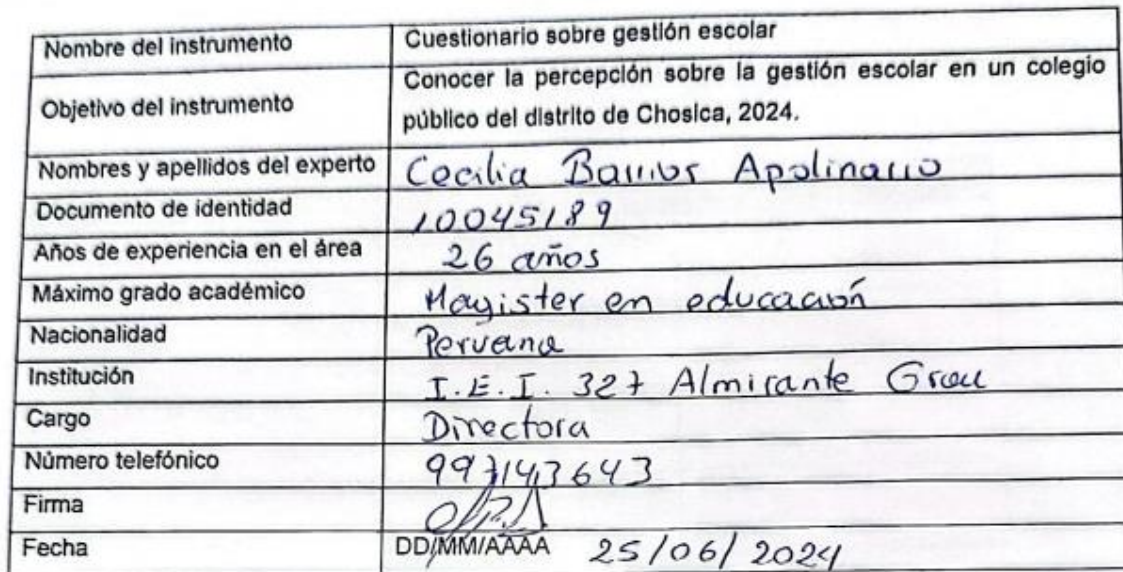 Nombre del instrumento
Cuestionario sobre gestión escolar
Objetivo del instrumento
Conocer la percepción sobre la gestión escolar en un colegio
público del distrito de Chosica, 2024.
Nombres y apellidos del experto Cecilia Barrios Apolinario
Documento de identidad 10045189
Años de experiencia en el área 26 años
Máximo grado académico Magister en educación
Nacionalidad Peruana
Institución I.E.I. 327 Almirante Grau
Cargo Directora
Número telefónico 997143643
Firma
Fecha DD/MM/AAAA 25/06/2024